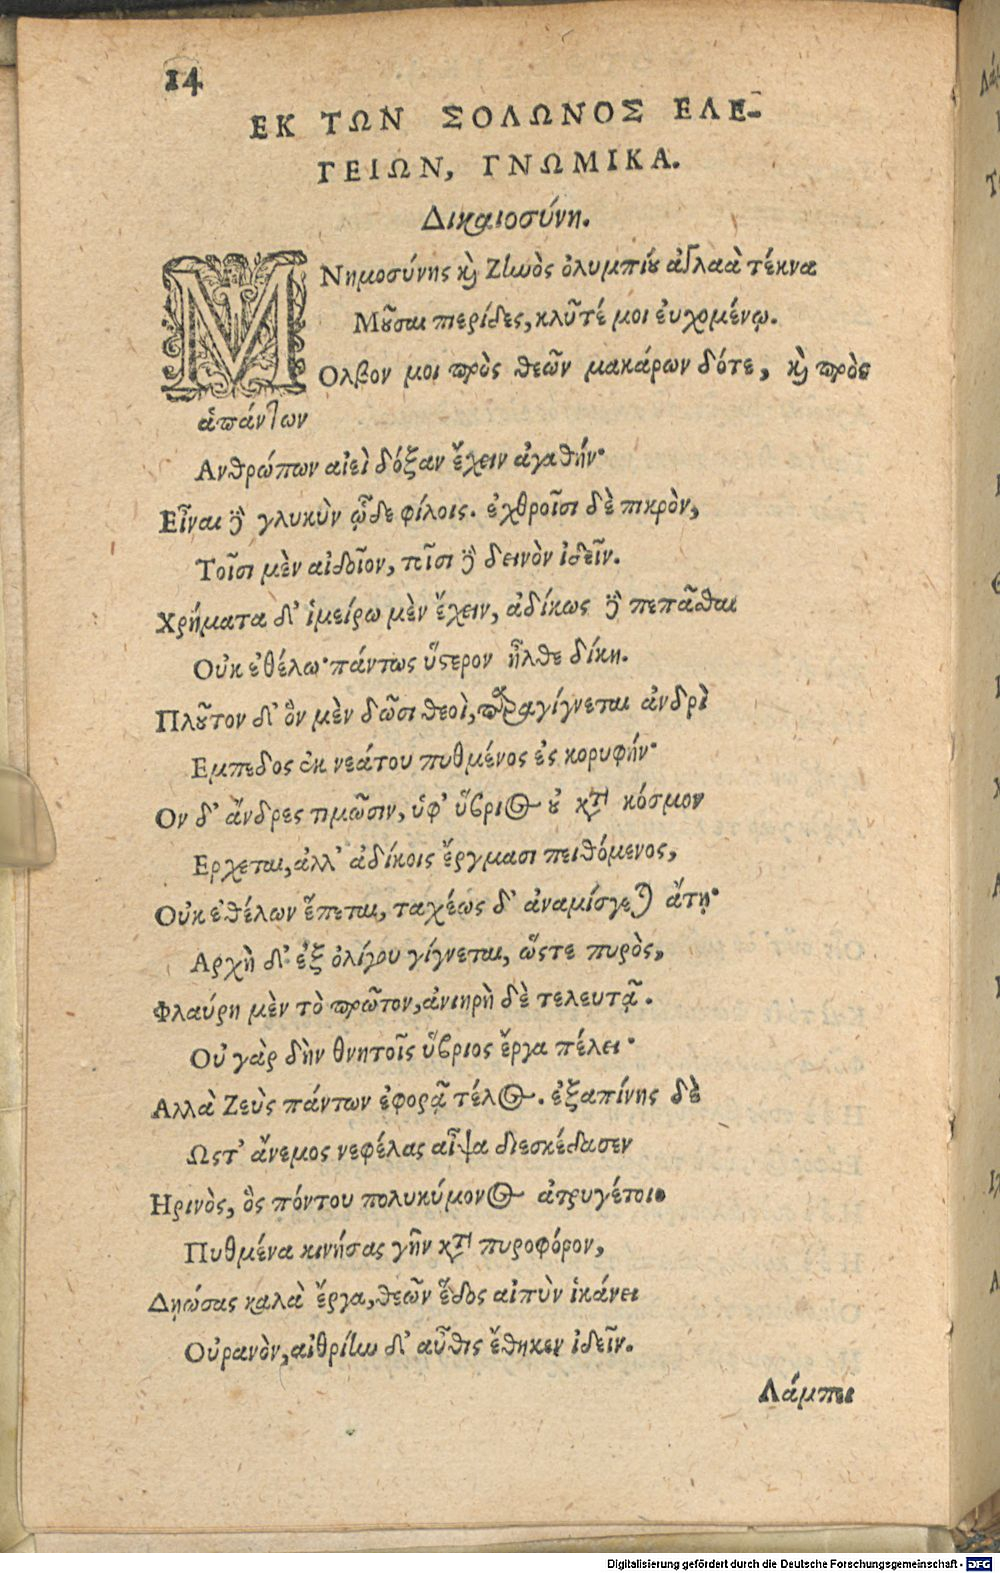 14
ΕΚ ΤΩΝ ΣΟΛΩΝΟΣ ΕΛΕ-
ΓΕΙΩΝ, ΓΝΩΜΙΚΑ.
Δικαιοσύνη.
ΜΝημοσύνης κὶ Ζίωὸς ὀλυμπίȣ ἀγλαὰ τέκνα
Μȣ̃σαι πιερίδες, κλῦτέ μοι ἐυχομένῳ.
Ολβον μοι πρὸς θεῶν μακάρων δότε, κὶ πρὸς
ἁπάντων
Ανθρώπων αἰεὶ δόξαν ἔχειν ἀγαθήν·
Εἶναι ȣ̓͂ γλυκὺν ᾧδε φίλοις. ἐχθροῖσι δὲ πικρὸν,
Τοῖσι μὲν αἰδοῖον, τοῖσι ȣ̓͂ δεινὸν ἰδεῖν.
Χρήματα δ' ἱμείρω μὲν ἔχειν, ἀδίκως ȣ̓͂ πεπᾶσθαι
Οὐκ ἐθέλω· πάντως ὕστερον ἦλθε δίκη.
Πλȣ̃τον δ' ὃν μὲν δῶσι θεοὶ, παραγίγνεται ἀνδρὶ
Εμπεδος ἐκ νεάτου πυθμένος ἐς κορυφήν·
Ον δ' ἄνδρες τιμῶσιν, ὑφ' ὕβριος ȣ̓ κτ̀ κόσμον
Ερχεται, ἀλλ' ἀδίκοις ἔργμασι πειθόμενος,
Οὐκ ἐθέλων ἕπεται, ταχέως δ' ἀναμίσγεται ἄτῃ·
Αρχὴ δ' ἐξ ὀλίγου γίγνεται, ὥςτε πυρὸς,
Φλαύρη μὲν τὸ πρῶτον, ἀνιηρὴ δὲ τελευτᾷ.
Οὐ γὰρ δὴν θνητοῖς ὕβριος ἔργα πέλει·
Αλλὰ Ζεὺς πάντων ἐφορᾷ τέλος. ἐξαπίνης δὲ
Ωςτ' ἄνεμος νεφέλας αἶψα διεσκέδασεν
Ηρινὸς, ὃς πόντου πολυκύμονος ἀτρυγέτοιο
Πυθμένα κινήσας γῆν κτ̀ πυροφόρον,
Δῃώσας καλὰ ἔργα, θεῶν ἕδος αἰπὺν ἱκάνει
Οὐρανὸν, αἰθρίlω δ' αὖθις ἔθηκεν ἰδεῖν.
Λάμπει
Digitalisierung gefördert durch die Deutsche Forschungsgemeinschaft - DFG